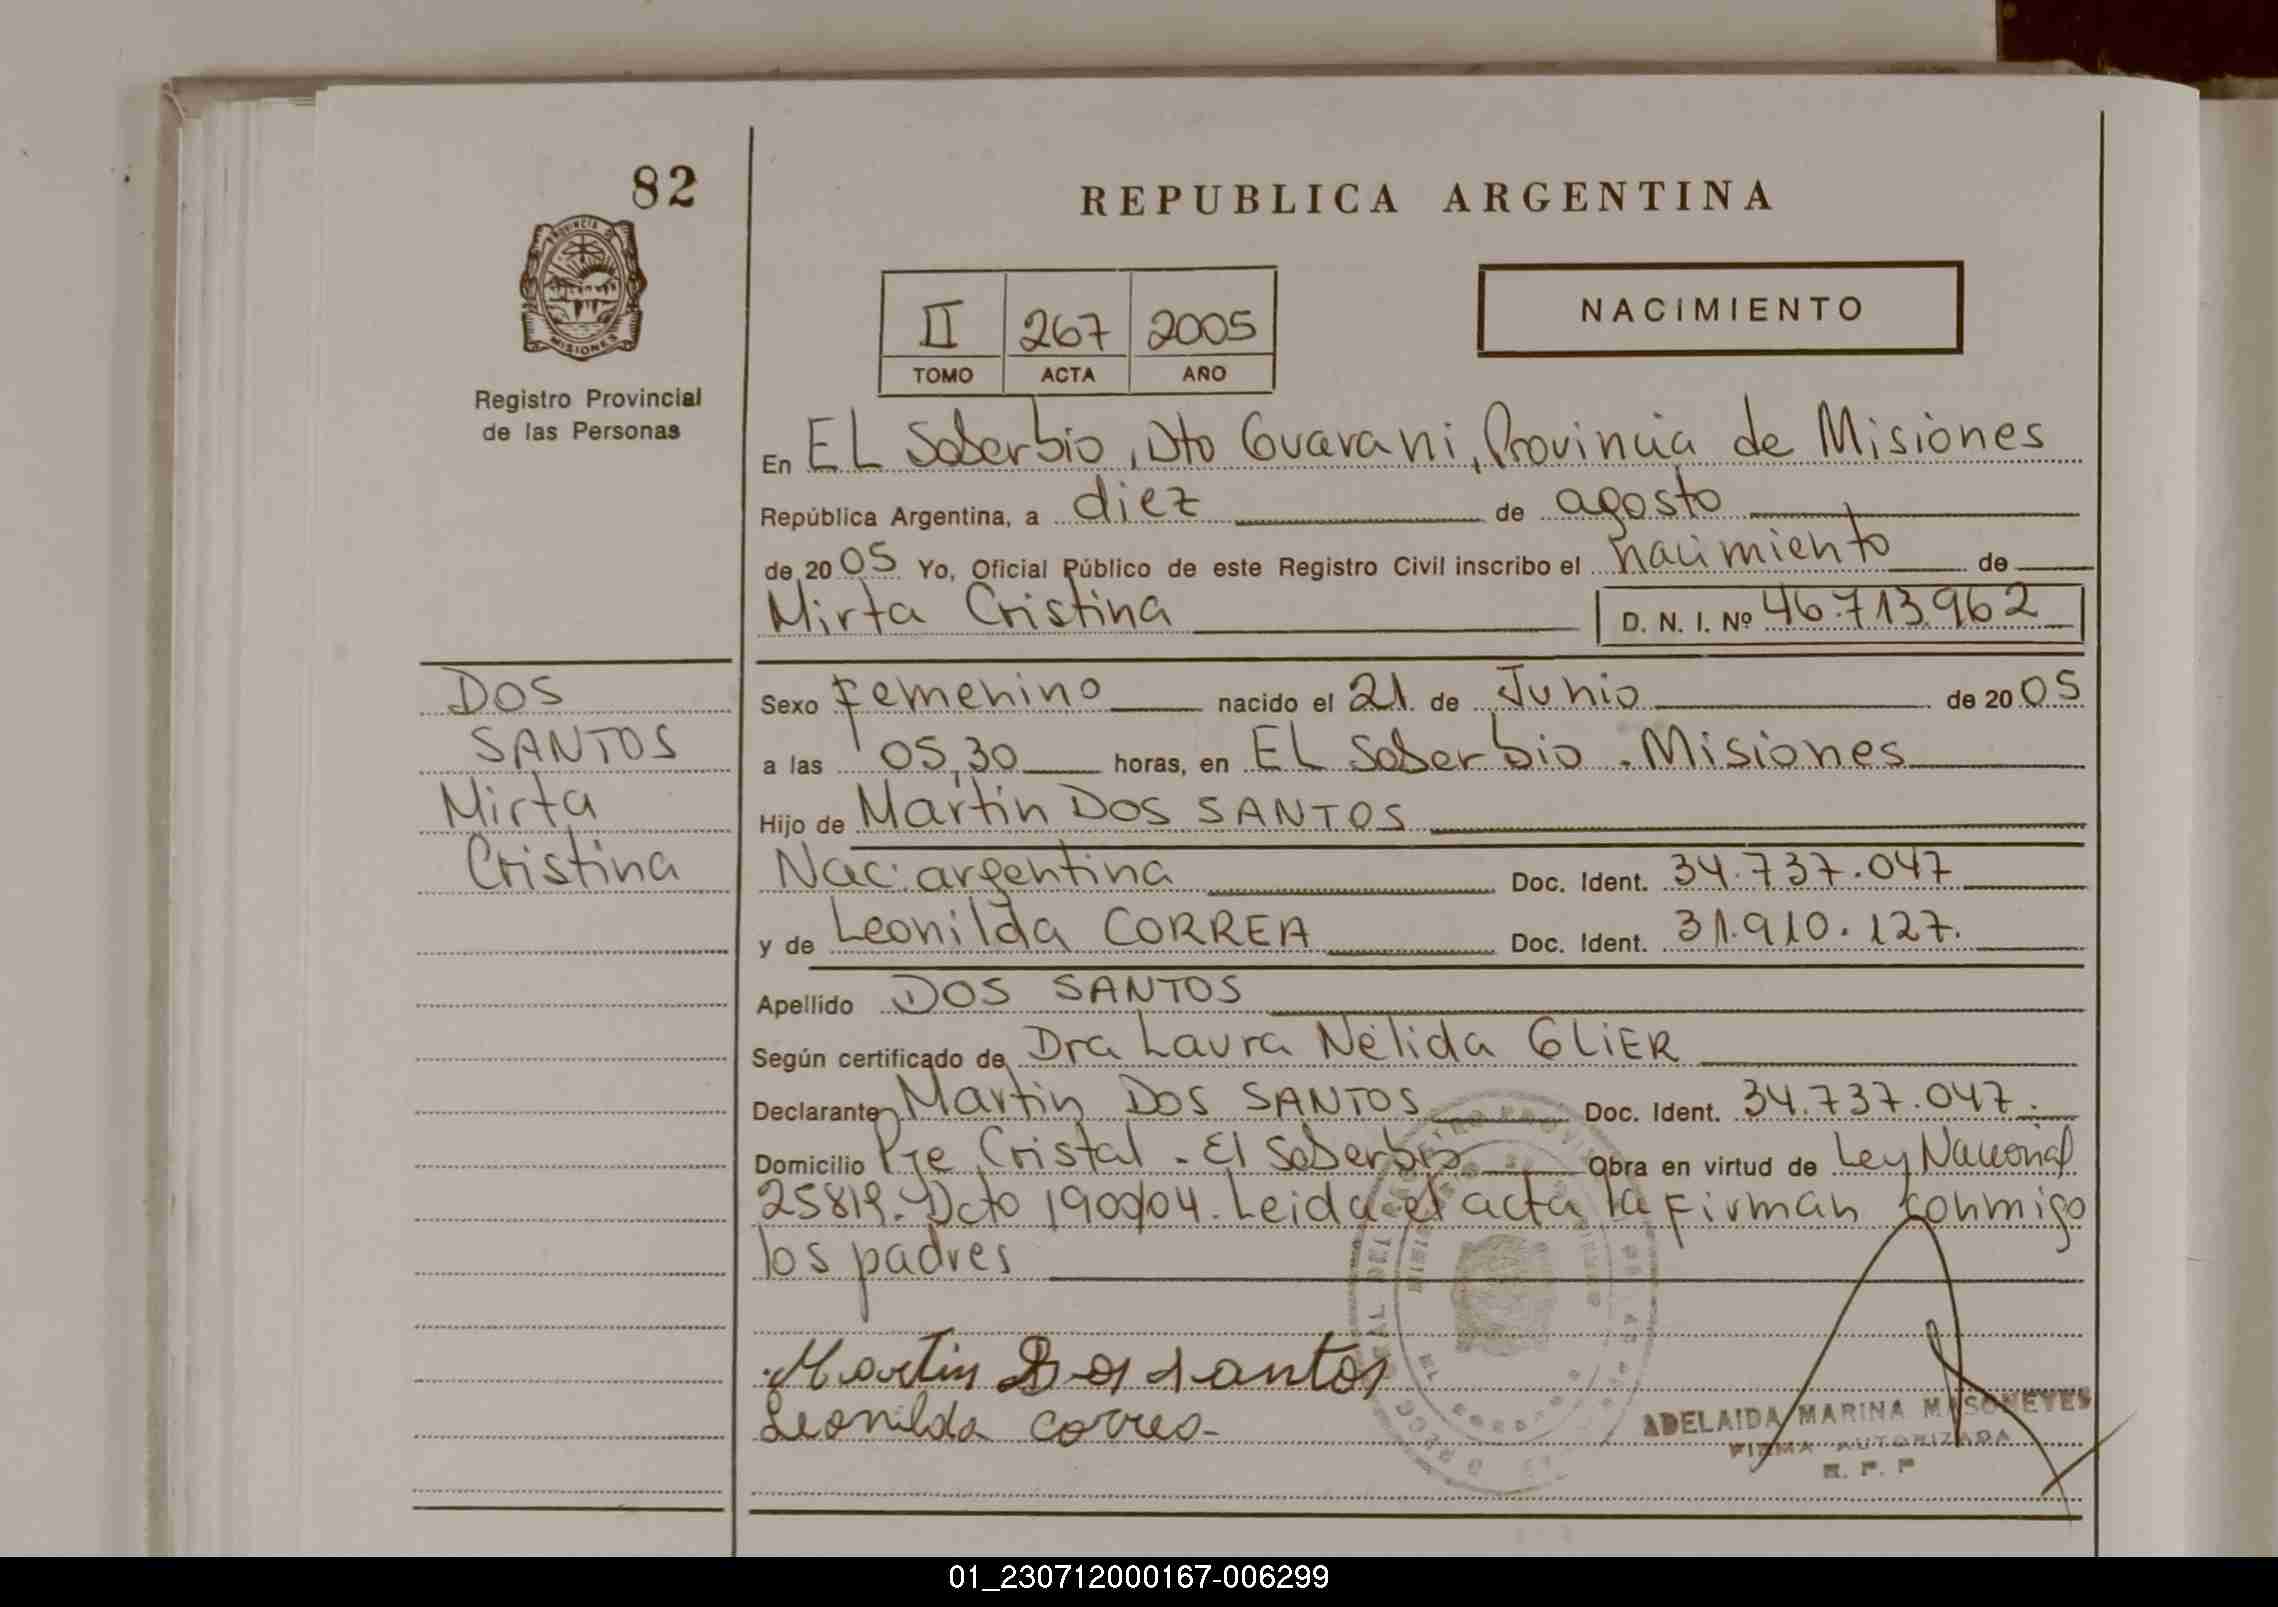 82
REPUBLICA ARGENTINA
PROVINCIA DE
MISIONES
Registro Provincial
de las Personas
II 267 2005
TOMO ACTA AÑO
NACIMIENTO
En EL Soberbio, Dto Guarani, Provincia de Misiones
República Argentina, a diez de agosto
de 2005 Yo, Oficial Público de este Registro Civil inscribo el nacimiento de
Mirta Cristina D. N. I. Nº 46.713.962
DOS
SANTOS
Mirta
Cristina
Sexo femenino nacido el 21 de Junio de 2005
a las 05,30 horas, en EL Soberbio - Misiones
Hijo de Martin DOS SANTOS
Nac: argentina Doc. Ident. 34.737.047
y de Leonilda CORREA Doc. Ident. 31.910.127.
Apellido DOS SANTOS
Según certificado de Dra Laura Nélida GLIER
Declarante Martin DOS SANTOS Doc. Ident. 34.737.047.
Domicilio Pje Cristal - El Soberbio Obra en virtud de Ley Nacional
25819. Dcto 1900/04. Leida el acta la firman conmigo
los padres
Martin Dos santos
Leonilda correa
ADELAIDA MARINA MASONEYES
FIRMA AUTORIZADA
R. P. P
01_230712000167-006299